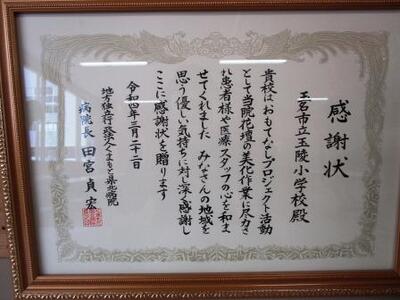 感謝状
玉名市立玉陵小学校殿
貴校はおもてなしプロジェクト活動
として当院花壇の美化作業に尽力さ
れ患者様や医療スタッフの心を和ま
せてくれました みなさんの地域を
思う優しい気持ちに対し深く感謝し
ここに感謝状を贈ります
令和四年三月二十二日
地方独立行政法人くまもと県北病院
病院長 田宮貞宏